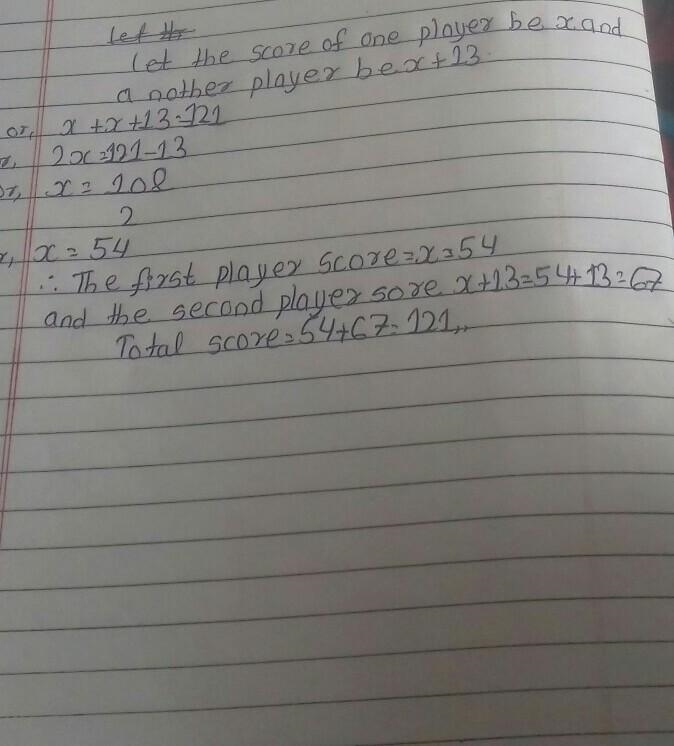 Let the score of one player be x and
another player be x + 13.
or, x + x + 13 = 121
2x = 121 - 13
or, x = 108
2
x = 54
∴ The first player score = x = 54
and the second player sore x + 13 = 54 + 13 = 67
Total score = 54 + 67 = 121,,